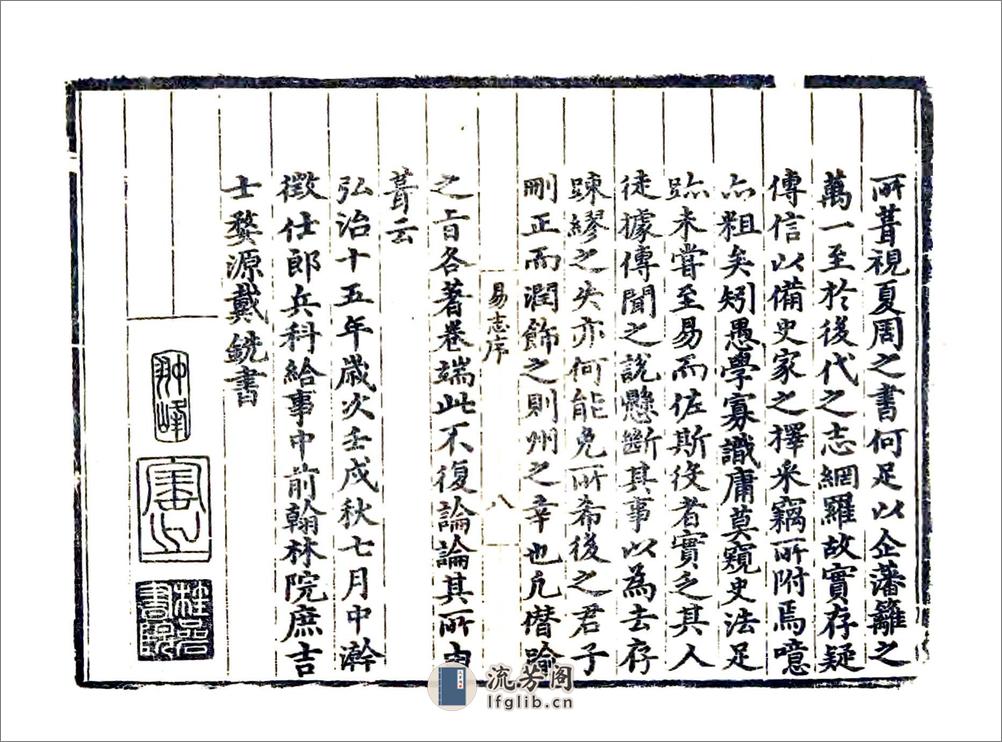 所葺視夏周之書何足以企藩籬之
萬一至於後代之志網羅故實存疑
傳信以備史家之擇采竊所附焉噫
亦粗矣矧愚學寡識庸莫窺史法足
跡未嘗至易而佐斯役者實乏其人
徒據傳聞之說懸斷其事以為去存
踈繆之失亦何能免所希後之君子
刪正而潤飾之則州之幸也凡僭踰
易志序
八
之旨各著卷端此不復論論其所由
葺云
弘治十五年歲次壬戌秋七月中澣
徵仕郎兵科給事中前翰林院庶吉
士婺源戴銑書
翀峰
流芳阁
lfglib.cn